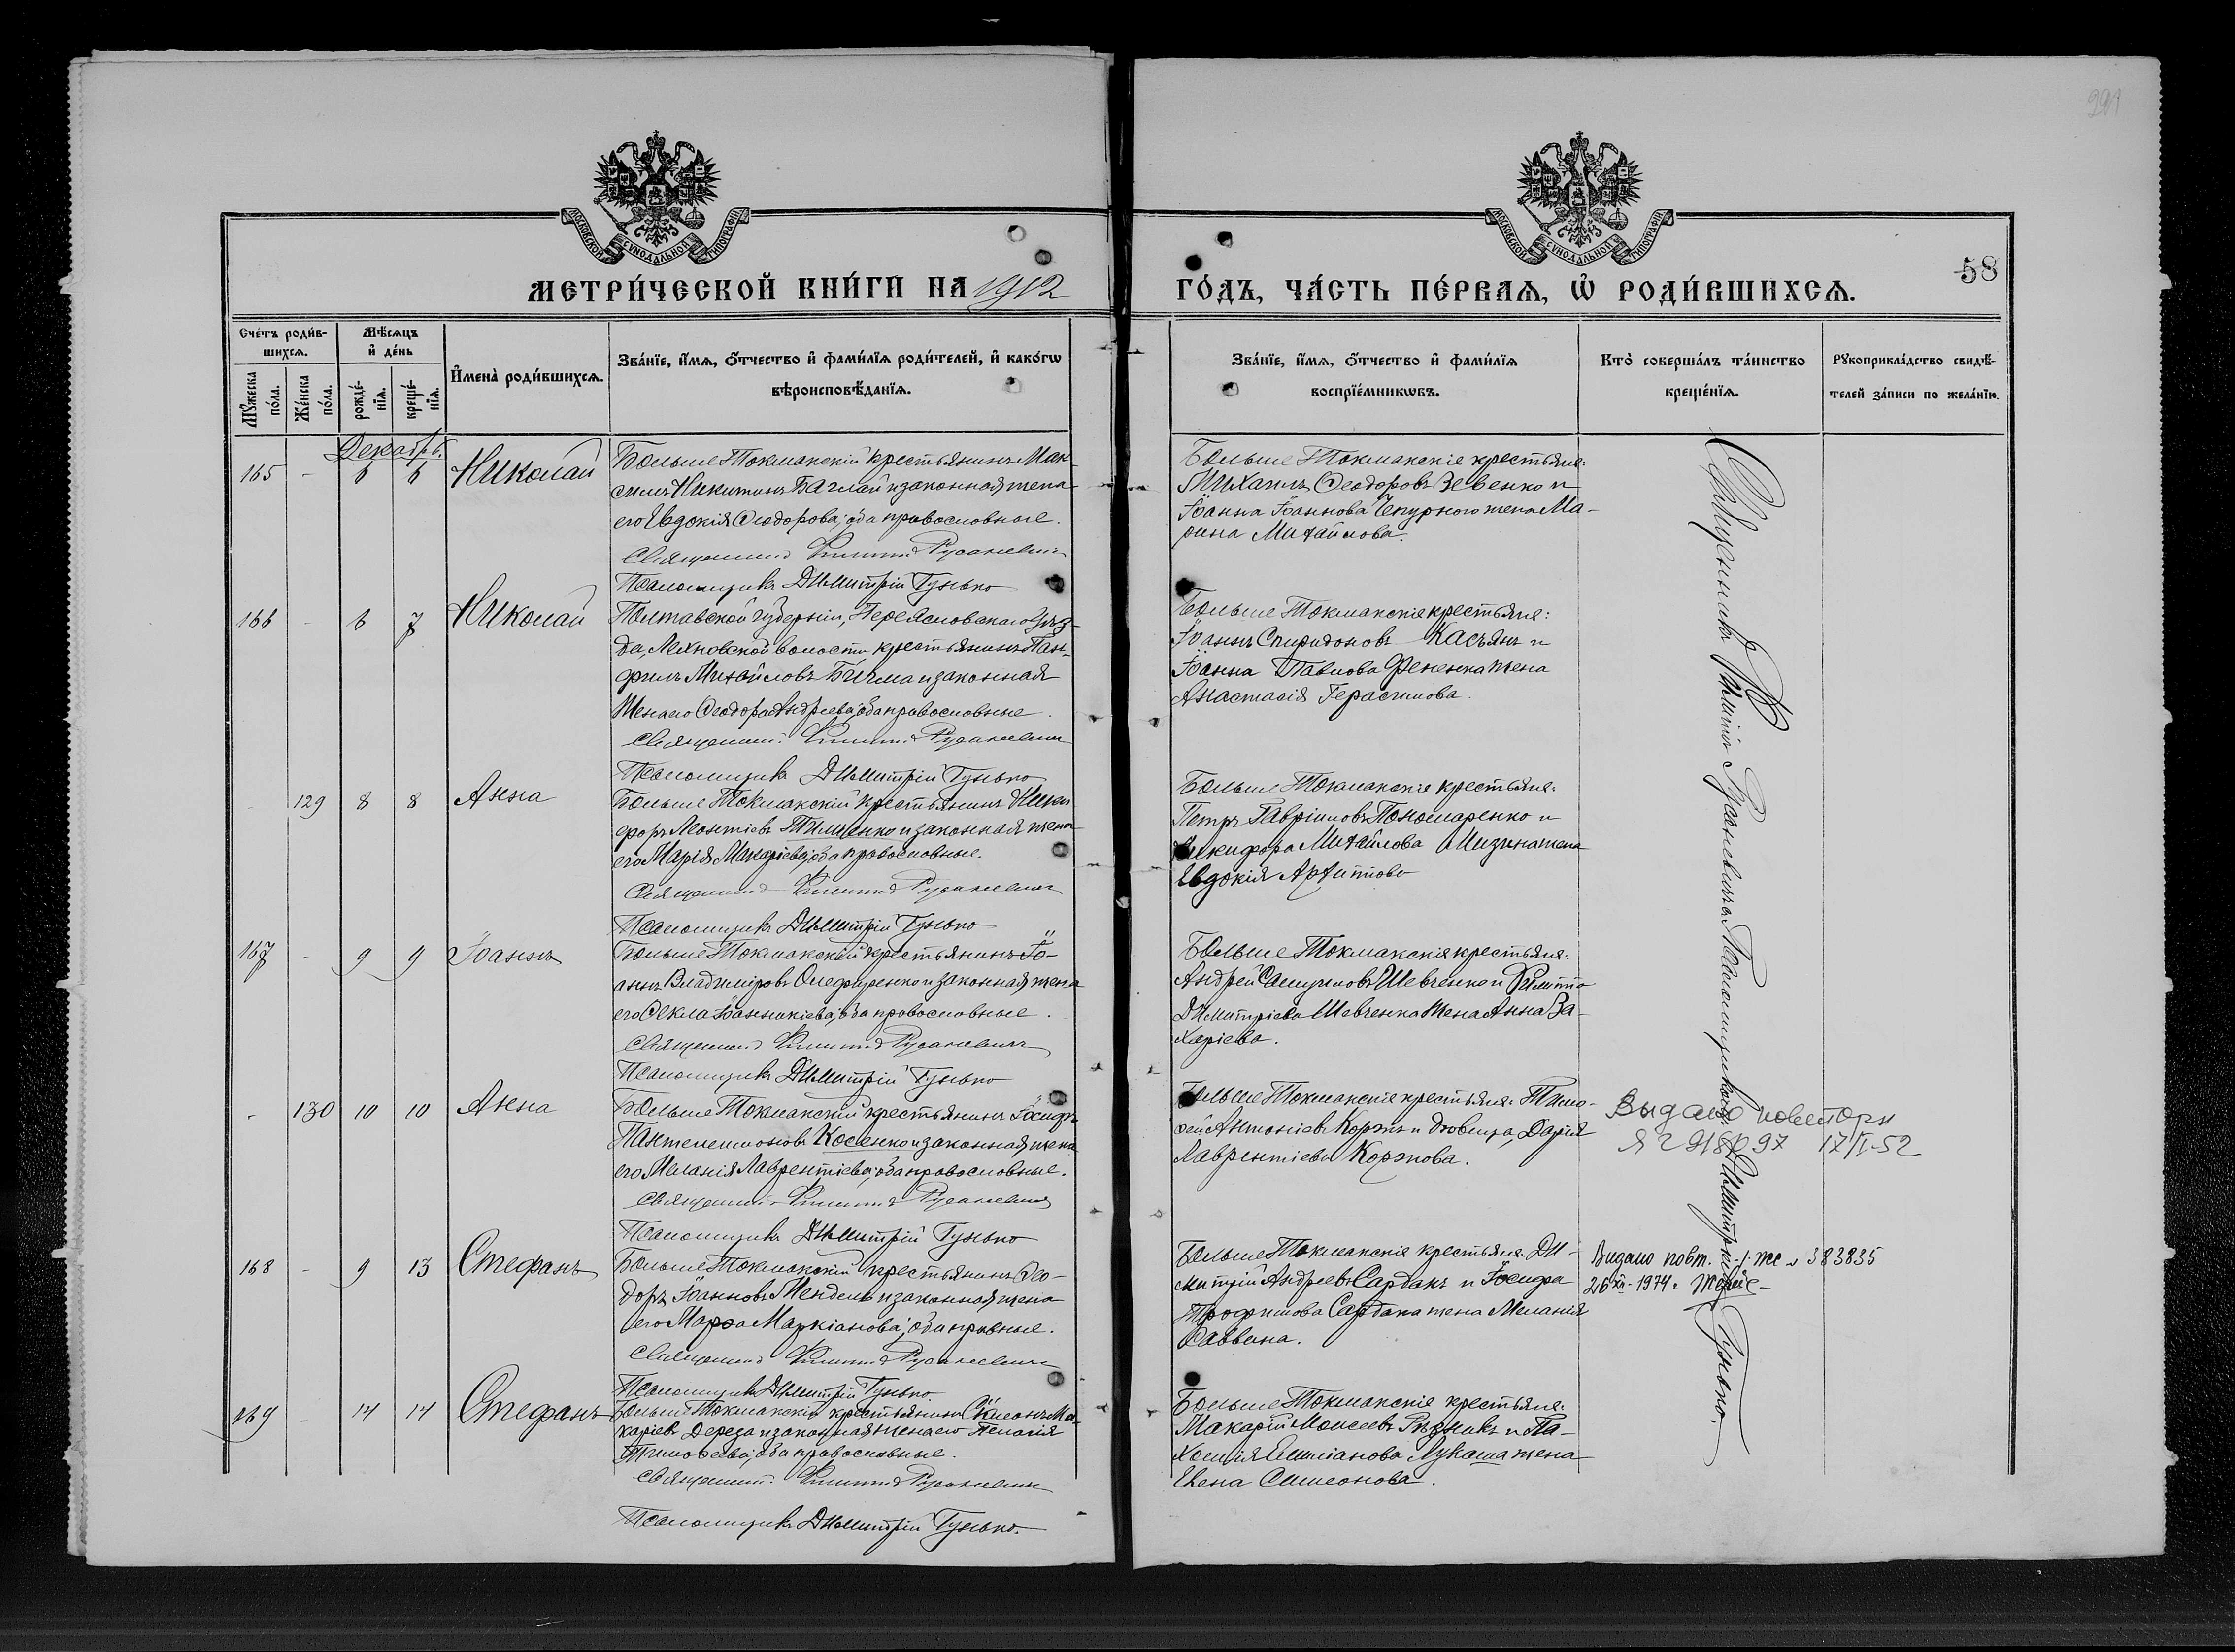 291
МОСКОВСКОЙ СѴНОДАЛЬНОЙ ТИПОГРАФІИ
МОСКОВСКОЙ СѴНОДАЛЬНОЙ ТИПОГРАФІИ
58
МЕТРИ́ЧЕСКОЙ КНИ́ГИ НА 1912
ГО́ДЪ, ЧА́СТЬ ПЕ́РВАѦ, Ѡ РОДИ́ВШИХСѦ.
Сче́тъ роди́в-
шихсѧ.
Мꙋ́жеска по́ла.
Же́нска по́ла.
Мѣ́сѧцъ
и҆ де́нь
рожде́-
нїѧ.
креще́-
нїѧ.
И҆мена̀ роди́вшихсѧ.
Зва́нїе, и҆́мѧ, ѻ҆́тчество и҆ фами́лїѧ роди́телей, и҆ како́гѡ
вѣроисповѣ́данїѧ.
Зва́нїе, и҆́мѧ, ѻ҆́тчество и҆ фами́лїѧ
воспрїе́мникѡвъ.
Кто̀ соверша́лъ та́инство
креще́нїѧ.
Рꙋкоприкла́дство свидѣ́-
телей за́писи по жела́нїю.
Декабрь.
165 - 6 6 Николай
Больше Токмакскій крестьянинъ Мак-
симъ Никитинъ Баглай и законная жена
его Евдокія Ѳеодорова; оба православные.
Священникъ Филиппъ Русаневичъ
Псаломщикъ Димитрій Гунько
Больше Токмакскіе крестьяне:
Михаилъ Ѳеодоровъ Зевенко и
Іоанна Іоаннова Чепурного жена Ма-
рина Михайлова.
166 - 6 7 Николай
Полтавской губерніи, Переяславскаго уѣз-
да, Лехновской волости крестьянинъ Пан-
филъ Михайловъ Бичма и законная
жена его Ѳеодора Андреева; оба православные.
Священникъ Филиппъ Русаневичъ
Псаломщикъ Димитрій Гунько
Больше Токмакскіе крестьяне:
Іоаннъ Спиридоновъ Касьянъ и
Іоанна Павлова Фененка жена
Анастасія Герасимова.
- 129 8 8 Анна
Больше Токмакскій крестьянинъ Ники-
форъ Леонтіевъ Тимченко и законная жена
его Марія Макаріева; оба православные.
Священникъ Филиппъ Русаневичъ
Псаломщикъ Димитрій Гунько
Больше Токмакскіе крестьяне:
Петръ Гавріиловъ Пономаренко и
Никифора Михайлова Мизина жена
Евдокія Архипова
167 - 9 9 Іоаннъ
Больше Токмакскій крестьянинъ Іо-
аннъ Владиміровъ Олефиренко и законная жена
его Ѳекла Іоанникіева; оба православные.
Священникъ Филиппъ Русаневичъ
Псаломщикъ Димитрій Гунько
Больше Токмакскіе крестьяне:
Андрей Самуиловъ Шевченко и Филиппа
Димитріева Шевченка жена Анна За-
харіева.
- 130 10 10 Анна
Больше Токмакскій крестьянинъ Іосифъ
Пантелеимоновъ Косенко и законная жена
его Меланія Лаврентіева; оба православные.
Священникъ Филиппъ Русаневичъ
Псаломщикъ Димитрій Гунько
Больше Токмакскіе крестьяне: Тимо-
фей Антоніевъ Коржъ и дѣвица, Дарія
Лаврентіева Коржова.
Выдано повтори
17/I-52
168 - 9 13 Стефанъ
Больше Токмакскій крестьянинъ Ѳео-
доръ Іоанновъ Мендель и законная жена
его Марѳа Маркіанова; оба правные.
Священникъ Филиппъ Русаневичъ
Псаломщикъ Димитрій Гунько
Больше Токмакскіе крестьяне: Ди-
митрій Андреевъ Сардакъ и Іосифа
Трофимова Сардака жена Меланія
Саввина.
Видано повт. 383835
26 XII-1974
169 - 14 14 Стефанъ
Больше Токмакскій крестьянинъ Симеонъ Ма-
каріевъ Дереза и законная жена его Пелагія
Тимоѳеева; оба православные.
Священникъ Филиппъ Русаневичъ
Псаломщикъ Димитрій Гунько.
Больше Токмакскіе крестьяне:
Макарій Моисеевъ Рѣзникъ и Па-
хомія Емиліанова Лукаша жена
Елена Симеонова.
Священникъ Филиппъ Русаневичъ Псаломщикомъ Димитріемъ Гунько.